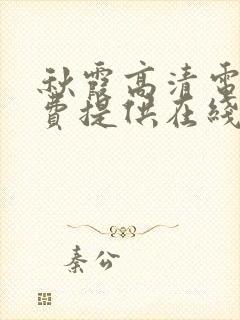 秋霞高清電
費提供在綫
秦公